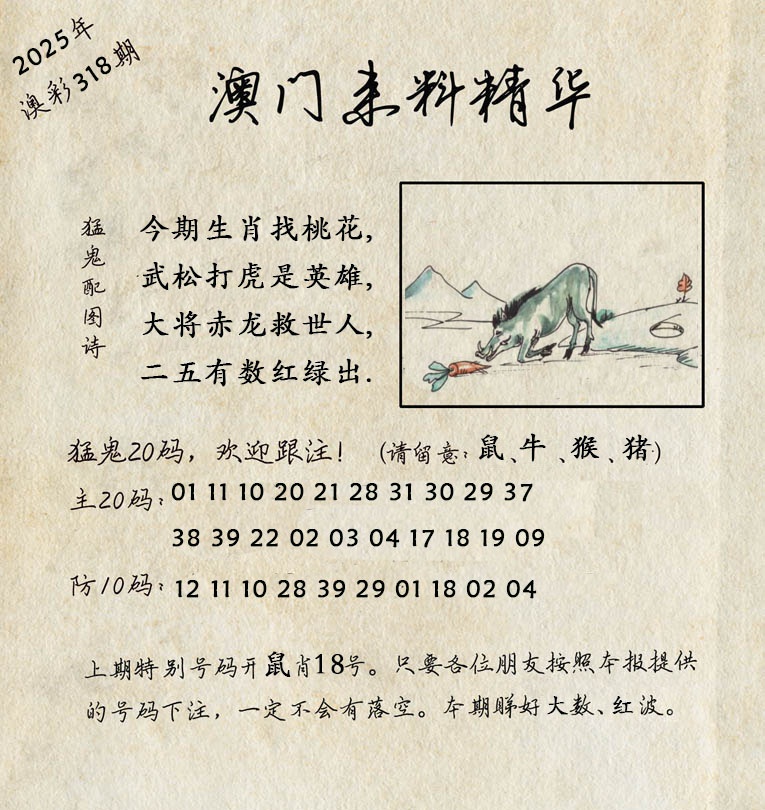 2025年
澳彩318期
澳门来料精华
猛鬼配图诗
今期生肖找桃花,
武松打虎是英雄,
大将赤龙救世人,
二五有数红绿出.
猛鬼20码，欢迎跟注！（请留意：鼠、牛、猴、猪）
主20码：01 11 10 20 21 28 31 30 29 37
38 39 22 02 03 04 17 18 19 09
防10码：12 11 10 28 39 29 01 18 02 04
上期特别号码开鼠肖18号。只要各位朋友按照本报提供
的号码下注，一定不会有落空。本期睇好大数、红波。